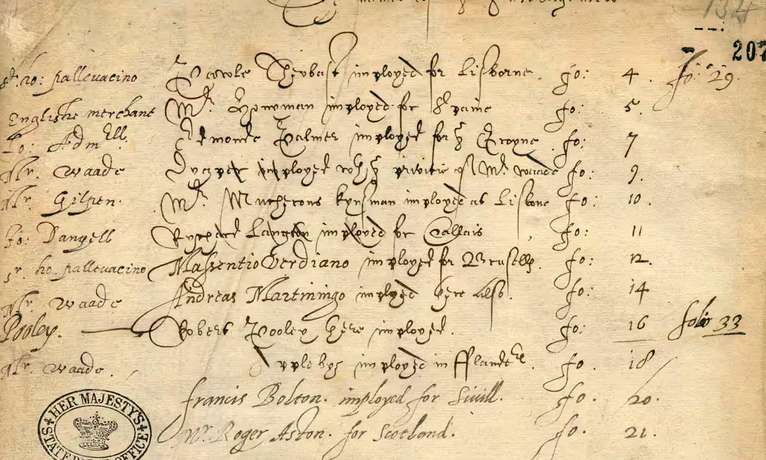 134
207
Sr. ho: pallevacino Carole imployed for Lisborne. fo: 4. fo: 29.
Englishe merchant Mr. imployed for Spaine fo: 5.
Lo: Admll Edmonde Palmer imployed for ye Groyne fo: 7
Mr. Waade imployed fo: 9.
Mr. Gilpen. Mr. Mucherons kynsman imployed at Lisbone fo: 10.
Jo: Dangell Rychard imployed for Callais fo: 11
Sr. ho. pallevacino Massentio Verdiano imployed for Brussells. fo: 12.
Mr. Waade Andreas Martiningo imployed here also. fo: 14
Pooley. Robert Pooley here imployed. fo: 16 folio 33
Mr. Waade. imployed in fo. 18
francis Bolton. imployed for Sivill. fo. 20.
Mr. Roger Aston. for Scotland. fo. 21.
HER MAJESTY'S STATE OFFICE